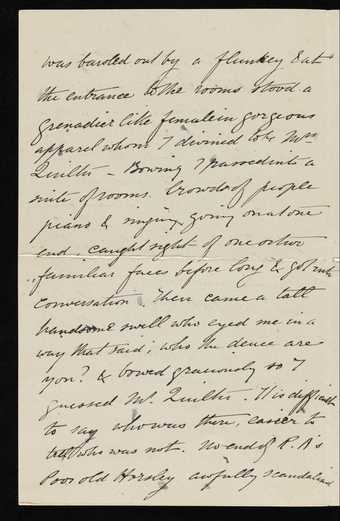 was bawled out by a flunkey & at
the entrance to the rooms stood a
grenadier like female in gorgeous
apparel whom I divined to be Mrs
Quilter – Bowing I passed into a
suite of rooms. Crowds of people
piano & singing going on at one
end. caught sight of one or two
familiar faces before long & got into
conversation. Then came a tall
handsome swell who eyed me in a
way that said, who the deuce are
you? & bowed graciously so I
guessed Mr. Quilter. It is difficult
to say who was there, easier to
tell who was not. No end of R.A's
Poor old Horsley awfully scandalized